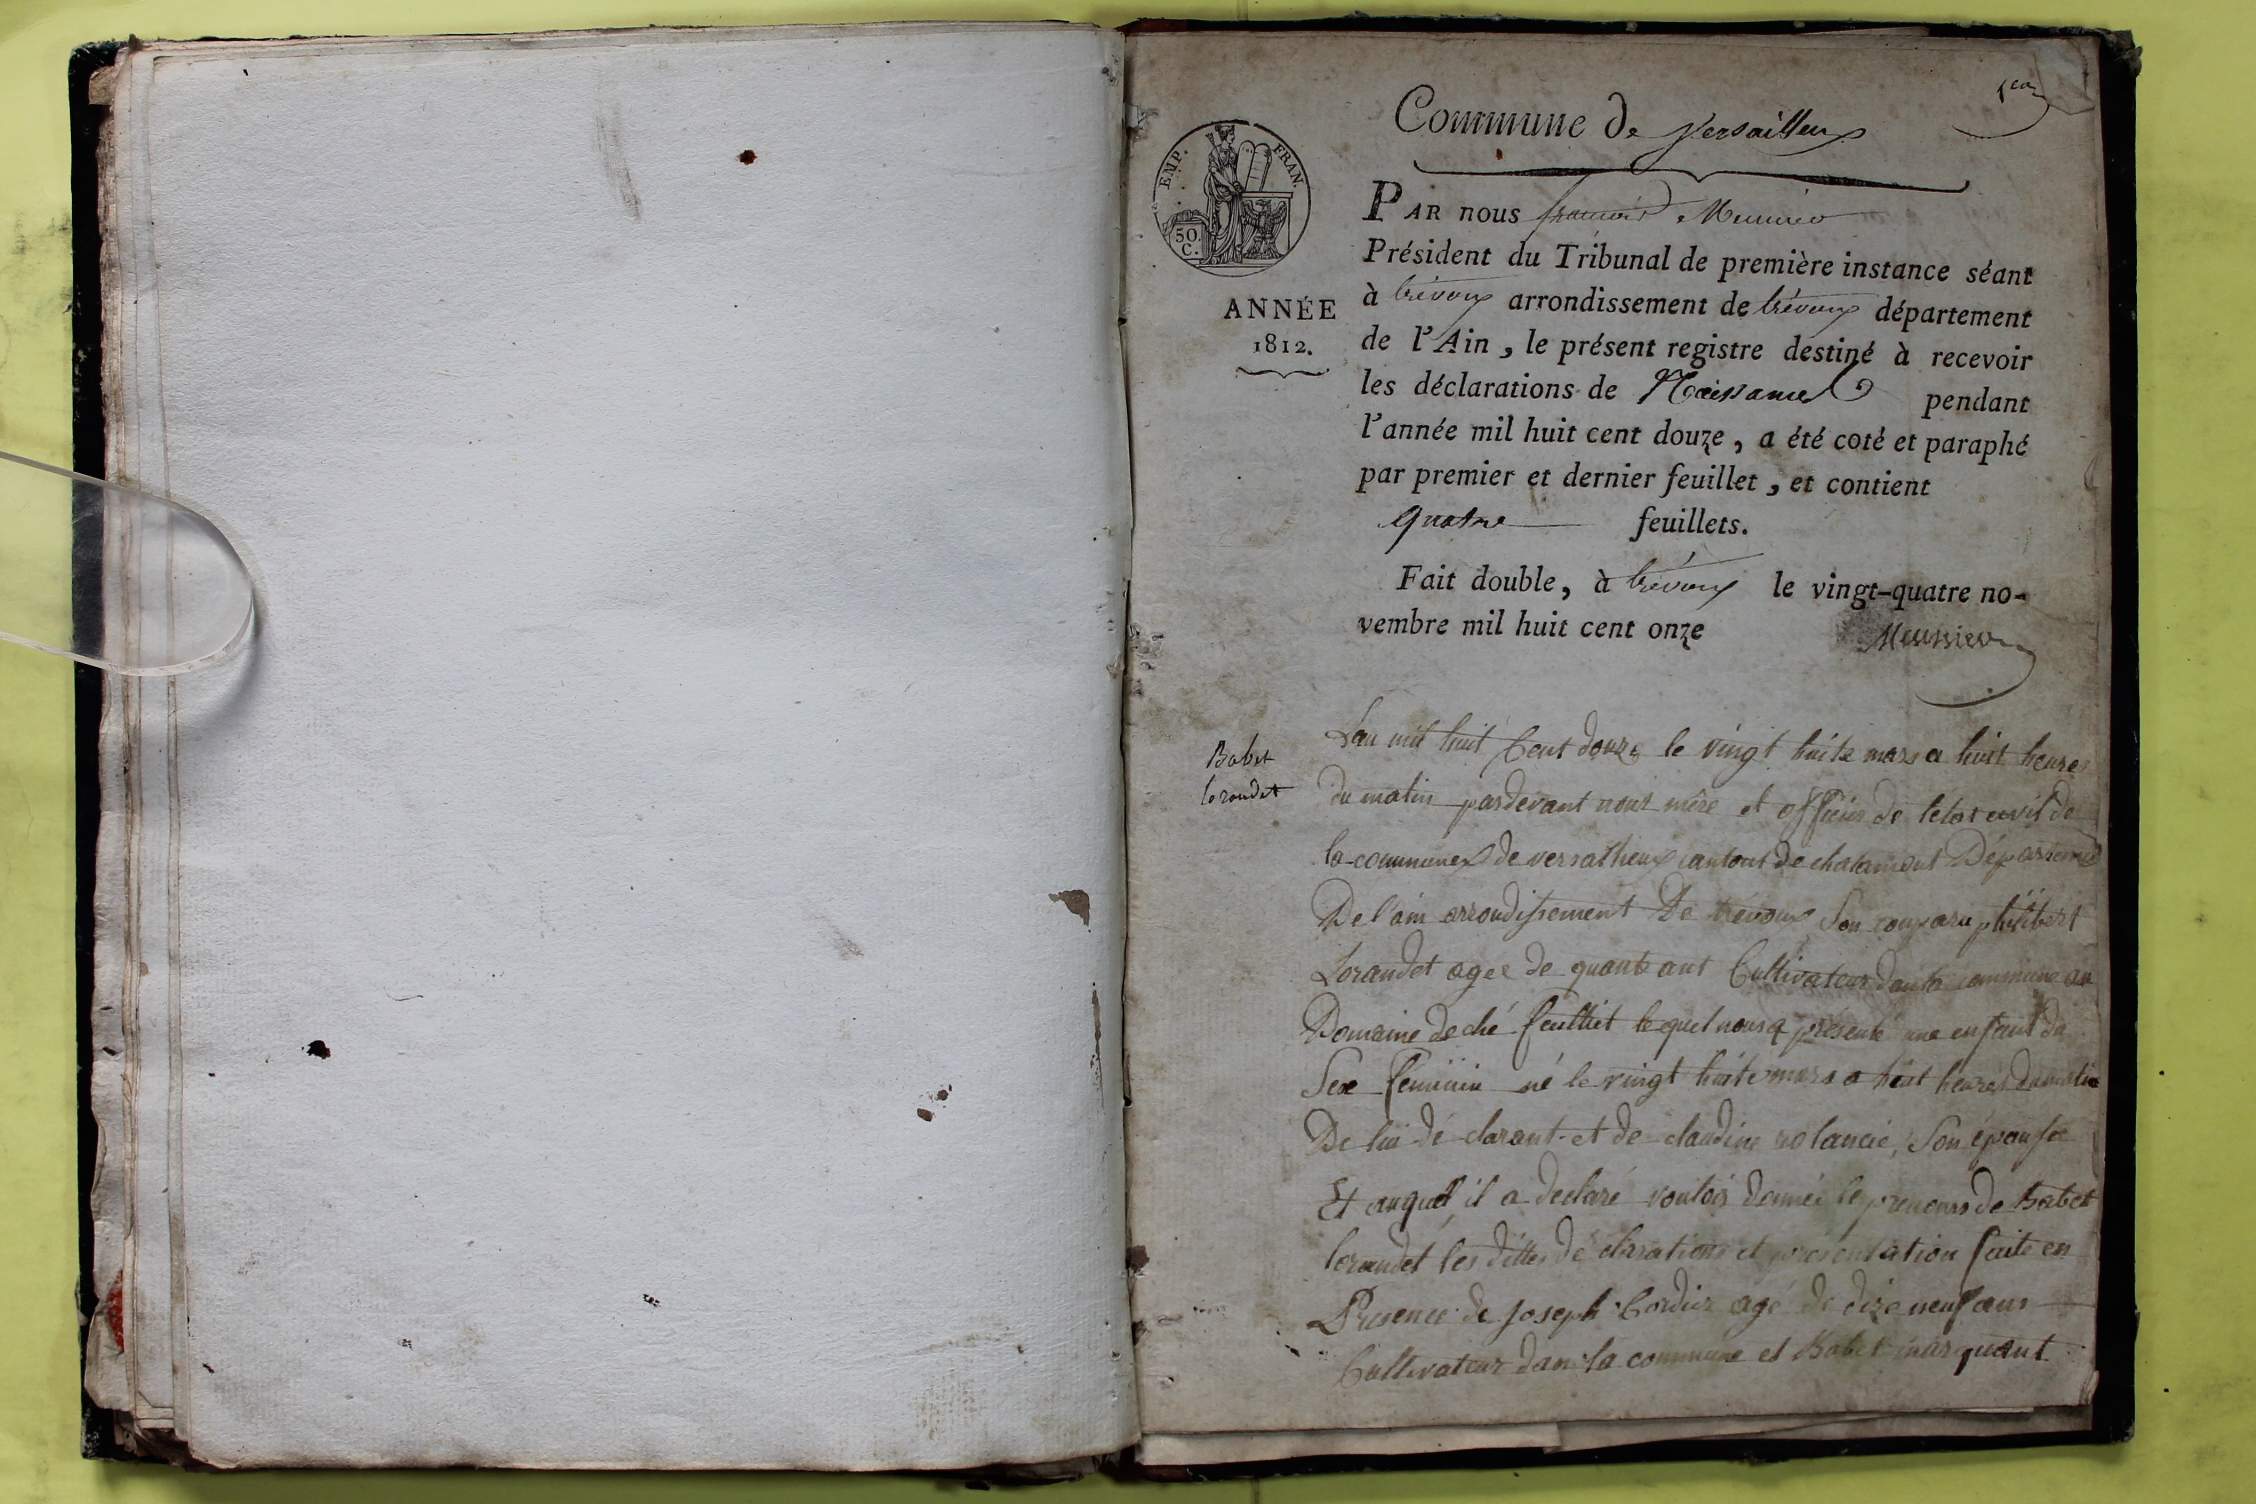 1er
Commune de Versailleux
EMP. FRAN.
50.
C.
PAR nous françois Meunier
Président du Tribunal de première instance séant
à trévoux arrondissement de trévoux département
ANNÉE
1812.
de l'Ain, le présent registre destiné à recevoir
les déclarations de Naissances pendant
l'année mil huit cent douze, a été coté et paraphé
par premier et dernier feuillet, et contient
quatre feuillets.
Fait double, à trévoux le vingt-quatre no-
vembre mil huit cent onze
Meunier
Babet
lorandet
Lan mil huit Cent douze le vingt huite mars a huit heures
du matin pardevant nous mère et officier de letat civil de
la commune de versalheux cantont de chalamont Département
De l'ain arrondissement De trévoux Son comparu philibert
Lorandet agee de quante ant Cultivateur dans la commune au
Domaine de ché feulliet lequel nous a présenté une enfant du
Sexe feminin né le vingt huite mars a huit heures du matin
De lui dé clarant et de claudine rolancie, Son épousse
Et auquel il a declaré vouloir donnée le prenoms de Babet
lorandet les dittes dé clarations et présentation faite en
Presence de Joseph Cordier agé de dize neuf ans
Cultivateur dans la commune et Babet marquant